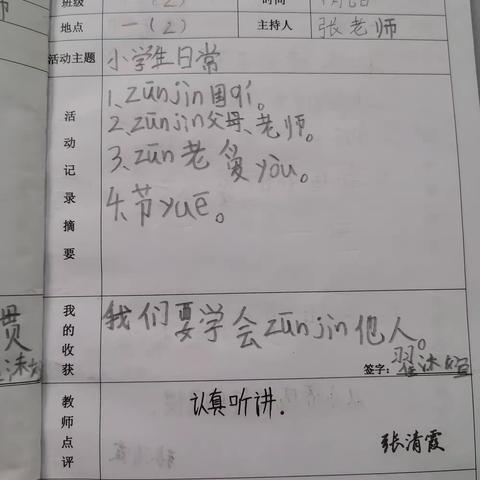 班级 (2) 时间
地点 一(2) 主持人 张老师
活动主题 小学生日常
活动记录摘要
1、zūnjìn国qí。
2、zūnjìn父母、老师。
3、zūn老爱yòu。
4、节yuē。
我的收获
我们要学会zūnjìn他人。
签字:翟沐
教师点评
认真听讲.
张清霞
师
贯